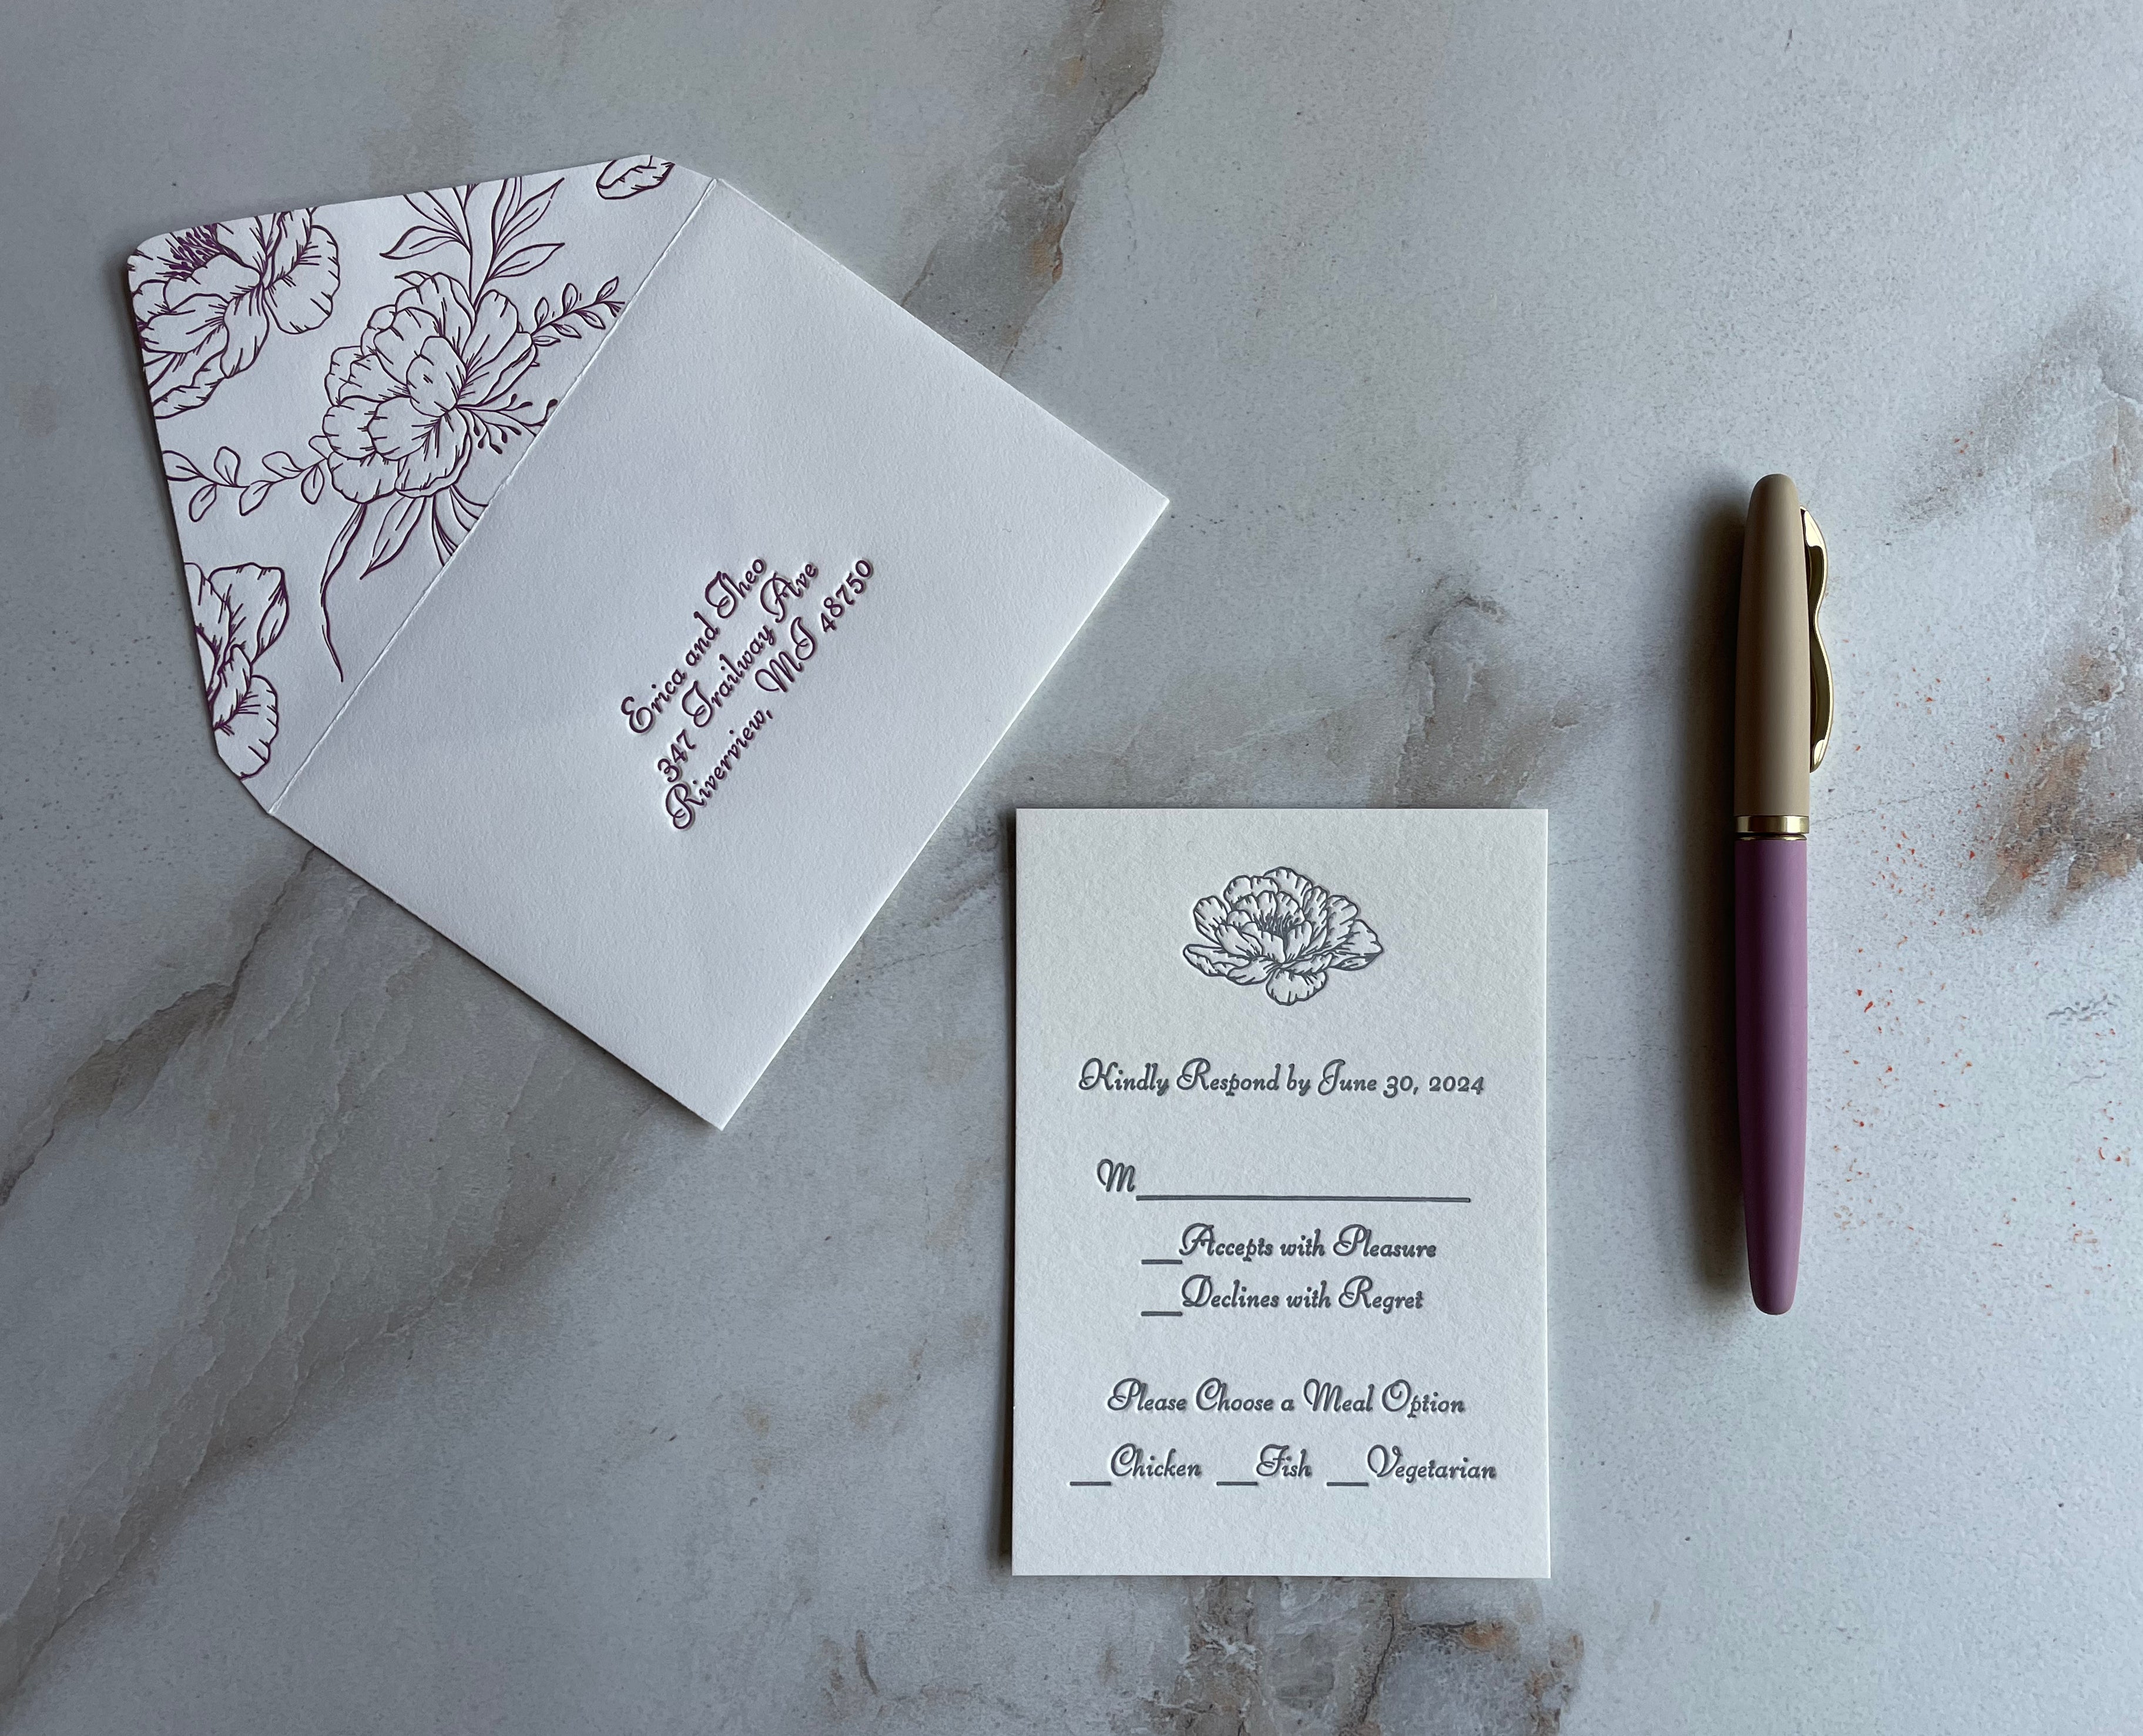 Erica and Theo
347 Trailway Ave
Riverview, MI 48750
Kindly Respond by June 30, 2024
M____________________
__Accepts with Pleasure
__Declines with Regret
Please Choose a Meal Option
__Chicken __Fish __Vegetarian